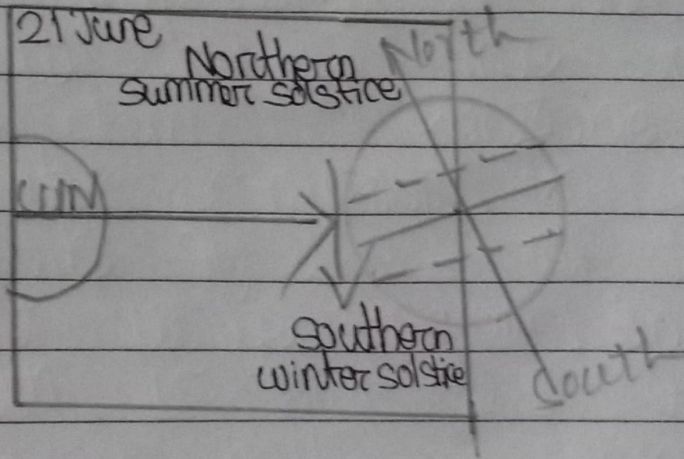 21 June
Northern
summer solstice
North
SUN
Southern
winter solstice
South